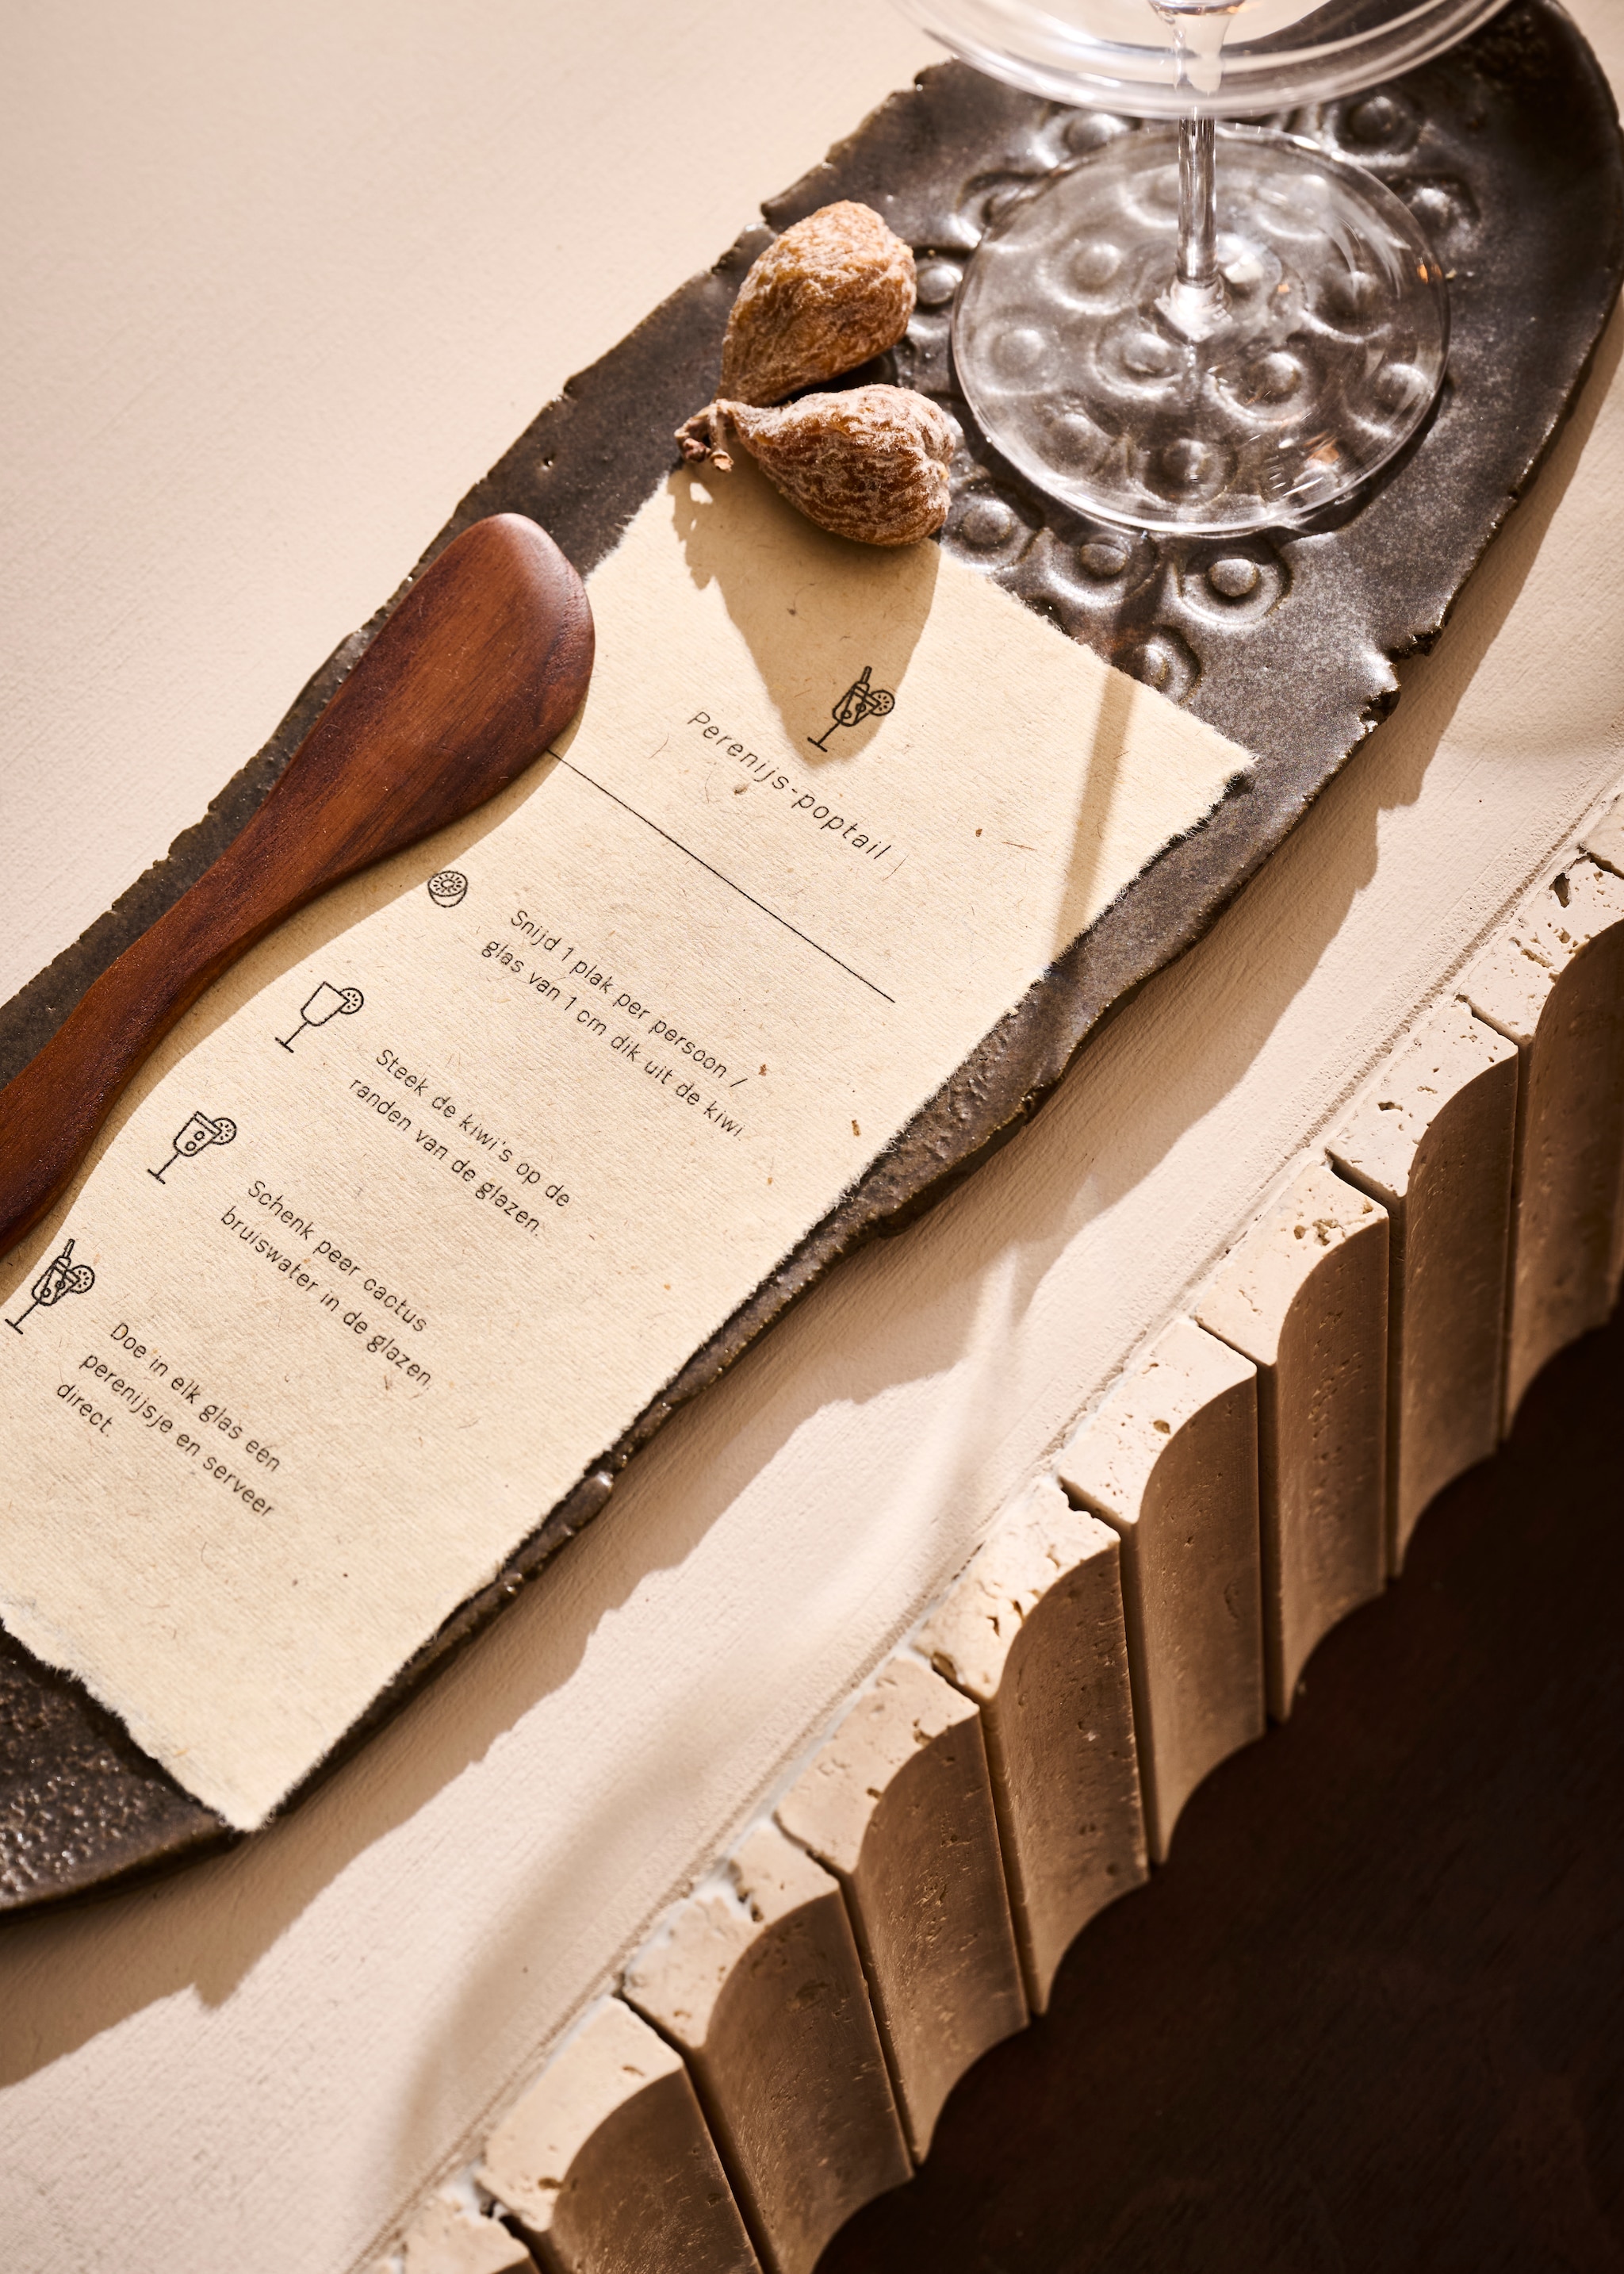 Perenijs-poptail
Snijd 1 plak per persoon /
glas van 1 cm dik uit de kiwi.
Steek de kiwi's op de
randen van de glazen.
Schenk peer cactus
bruiswater in de glazen.
Doe in elk glas één
perenijsje en serveer
direct.